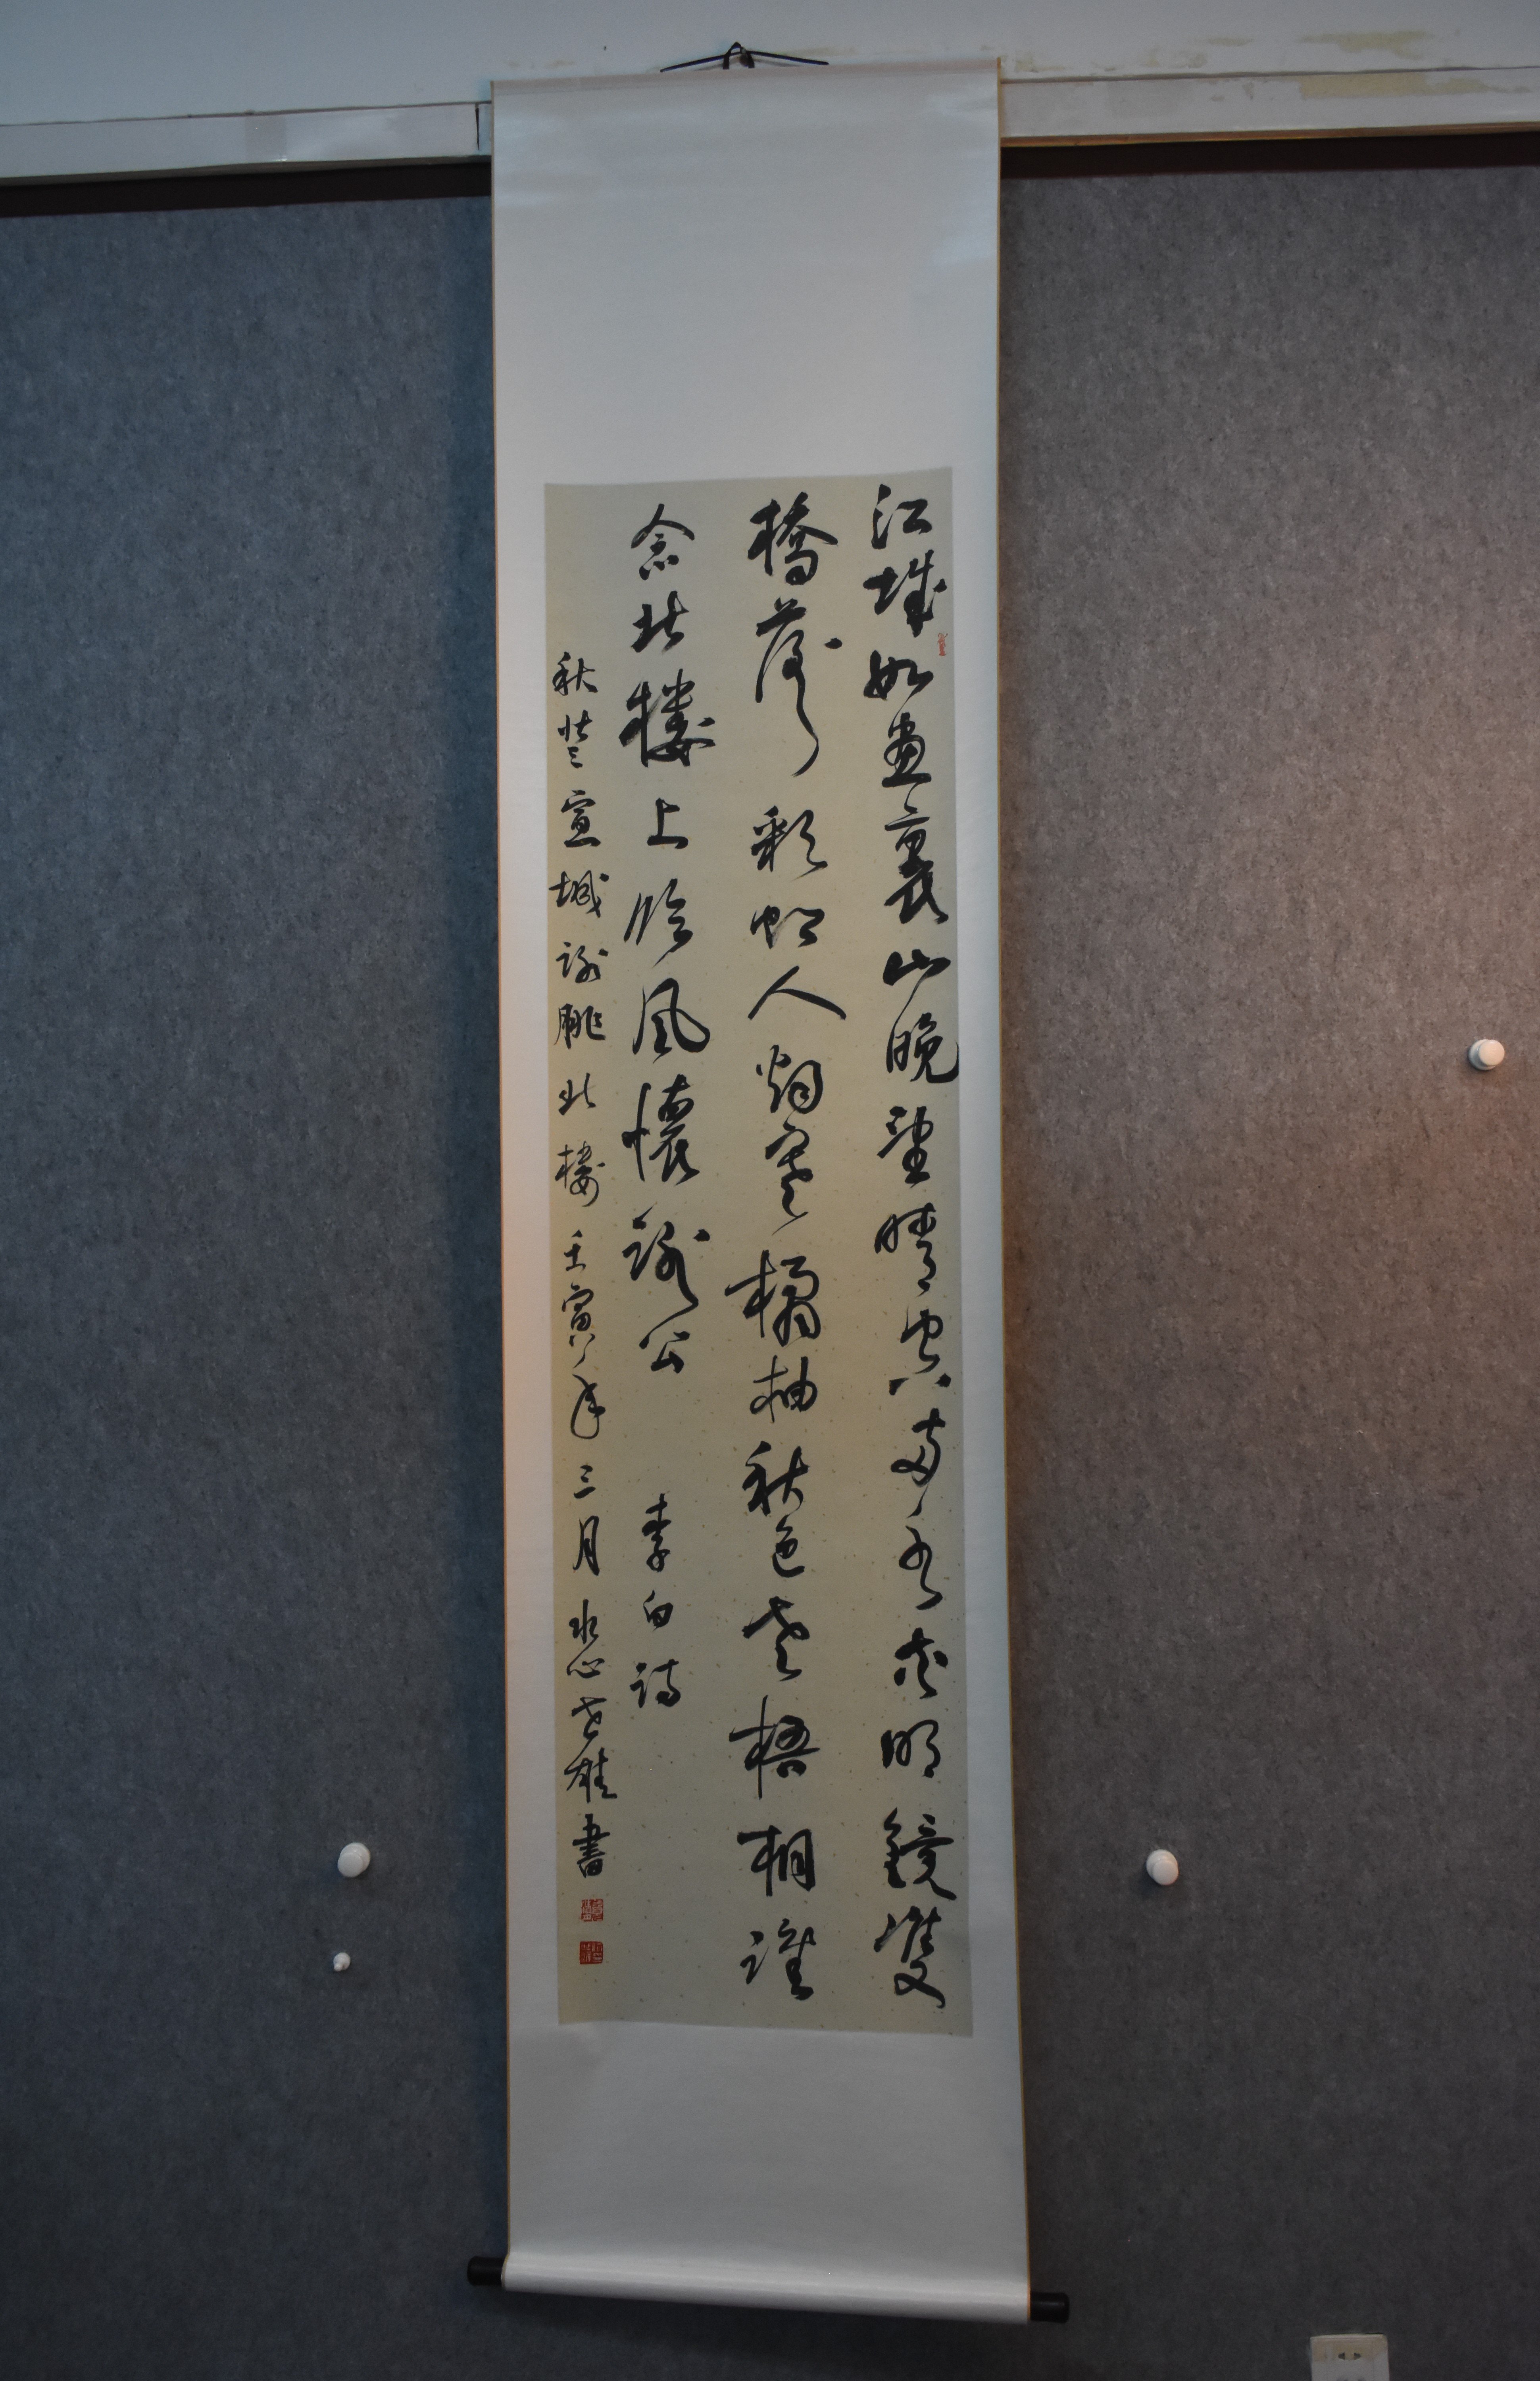 江城如畫裏山晚望晴空兩水夾明鏡雙
橋落彩虹人煙寒橘柚秋色老梧桐誰
念北樓上臨風懷謝公 李白詩
秋登宣城謝朓北樓 壬寅年三月 老雄書